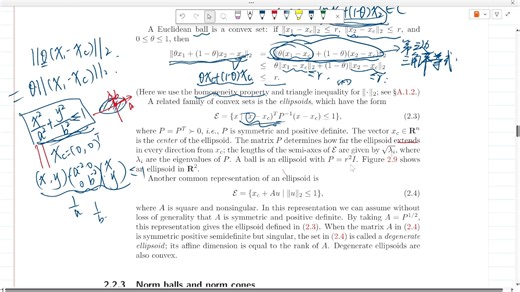 A Euclidean ball is a convex set: if ‖x₁ − x_c‖₂ ≤ r, ‖x₂ − x_c‖₂ ≤ r, and
0 ≤ θ ≤ 1, then
‖θx₁ + (1 − θ)x₂ − x_c‖₂ = ‖θ(x₁ − x_c) + (1 − θ)(x₂ − x_c)‖₂
≤ θ‖x₁ − x_c‖₂ + (1 − θ)‖x₂ − x_c‖₂
≤ r.
(Here we use the homogeneity property and triangle inequality for ‖·‖₂; see §A.1.2.)
A related family of convex sets is the ellipsoids, which have the form
ℰ = {x | (x − x_c)ᵀP⁻¹(x − x_c) ≤ 1}, (2.3)
where P = Pᵀ ≻ 0, i.e., P is symmetric and positive definite. The vector x_c ∈ Rⁿ
is the center of the ellipsoid. The matrix P determines how far the ellipsoid extends
in every direction from x_c; the lengths of the semi-axes of ℰ are given by √λᵢ, where
λᵢ are the eigenvalues of P. A ball is an ellipsoid with P = r²I. Figure 2.9 shows
an ellipsoid in R².
Another common representation of an ellipsoid is
ℰ = {x_c + Au | ‖u‖₂ ≤ 1}, (2.4)
where A is square and nonsingular. In this representation we can assume without
loss of generality that A is symmetric and positive definite. By taking A = P^{1/2},
this representation gives the ellipsoid defined in (2.3). When the matrix A in (2.4)
is symmetric positive semidefinite but singular, the set in (2.4) is called a degenerate
ellipsoid; its affine dimension is equal to the rank of A. Degenerate ellipsoids are
also convex.
2.2.3 Norm balls and norm cones
‖θ(x₁ − x_c)‖₂
θ‖x₁ − x_c‖₂
x_c = (0,0)ᵀ
θx_c + (1−θ)x_c
三角不等式